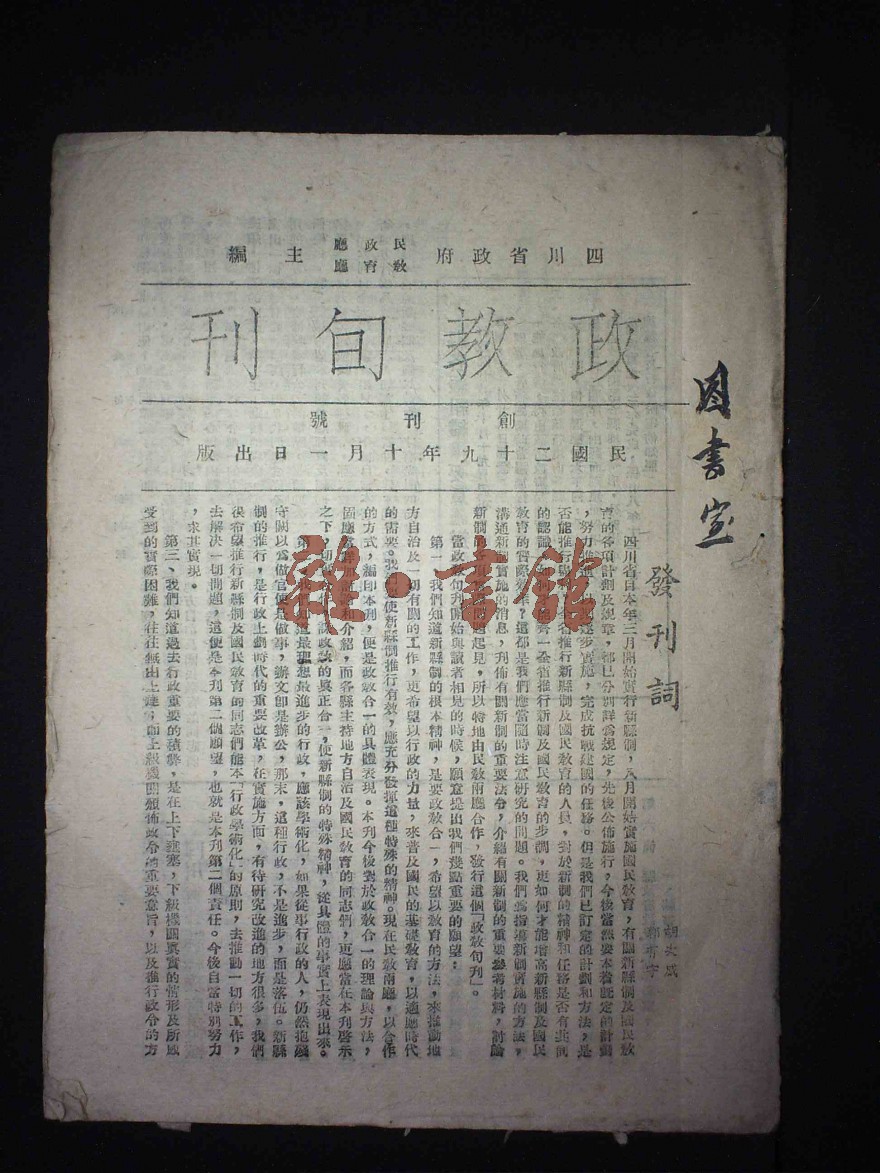 四川省政府民政廳教育廳主編
政教旬刊
創刊號
民國二十九年十月一日出版
圖書室
發刊詞
胡次威
郭有守
四川省自本年三月開始實行新縣制,八月開始實施國民教育,有關新縣制及國民教
育的各項計劃及規章,都已分別詳為規定,先後公佈施行,今後當然要本着訂定的計劃
,努力推進,以期逐步實施,完成抗戰建國的任務。但是我們已訂定的計劃和方法,是
否能推行 推行新縣制及國民教育的人員,對於新制的精神和任務是否有共同
的認識 全省推行新制及國民教育的步調,更如何才能增高新縣制及國民
教育的實際效率?這都是我們應當隨時注意研究的問題。我們為指導新制實施的方法,
溝通新制實施的消息,刊佈有關新制的重要法令,介紹有關新制的重要參考材料,討論
新制 問題起見,所以特地由民教兩廳合作,發行這個「政教旬刊」。
當政教旬刊開始與讀者相見的時候,願意提出我們幾點重要的願望:
第一、我們知道新縣制的根本精神,是要政教合一,希望以教育的方法,來推動地
方自治及一切有關的工作,更希望以行政的力量,來普及國民的基礎教育,以適應時代
的需要。我們要使新縣制推行有效,應充分發揮這種特殊的精神。現在民教兩廳,以合作
的方式,編印本刊,便是政教合一的具體表現。本刊今後對於政教合一的理論與方法,
固應當詳加 和介紹,而各縣主持地方自治及國民教育的同志們,更應當在本刊啓示
之下,一切 政教的真正合一,使新縣制的特殊精神,從具體的事實上表現出來。
第二、我們知道最理想最進步的行政,應該學術化,如果從事行政的人,仍然抱殘
守闕以為做官便是做事,辦文即是辦公,那末,這種行政,不是進步,而是落伍。新縣
制的推行,是行政上劃時代的重要改革,在實施方面,有待研究改進的地方很多,我們
很希望推行新縣制及國民教育的同志們能本「行政學術化」的原則,去推動一切的工作,
去解決一切問題,這便是本刊第二個願望,也就是本刊第二個責任。今後自當特別努力
,求其實現。
第三、我們知道過去行政重要的積弊,是在上下壅塞,下級機關真實的情形及所感
受到的實際困難,往往無由上達,而上級機關頒佈政令的重要意旨,以及推行政令的方
雜·書館